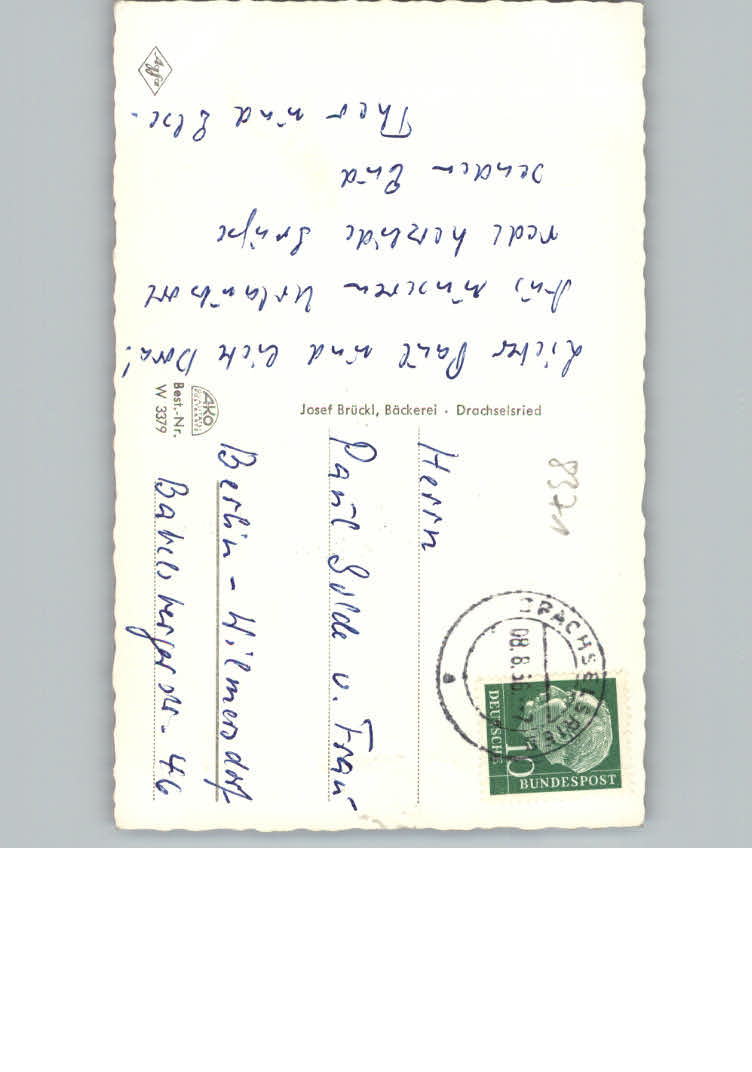 Lieber Paul und liebe Dora!
Aus unserem Urlaubsort
recht herzliche Grüße
senden Euch
Theo und Else.
Agfa
Josef Brückl, Bäckerei · Drachselsried
AKO
Best.-Nr.
W 3379
Herrn
Paul Golde u. Frau
Berlin-Wilmersdorf
Babelsbergerstr. 46
8371
DRACHSELSRIED
08.8.56
a
DEUTSCHE
BUNDESPOST
10